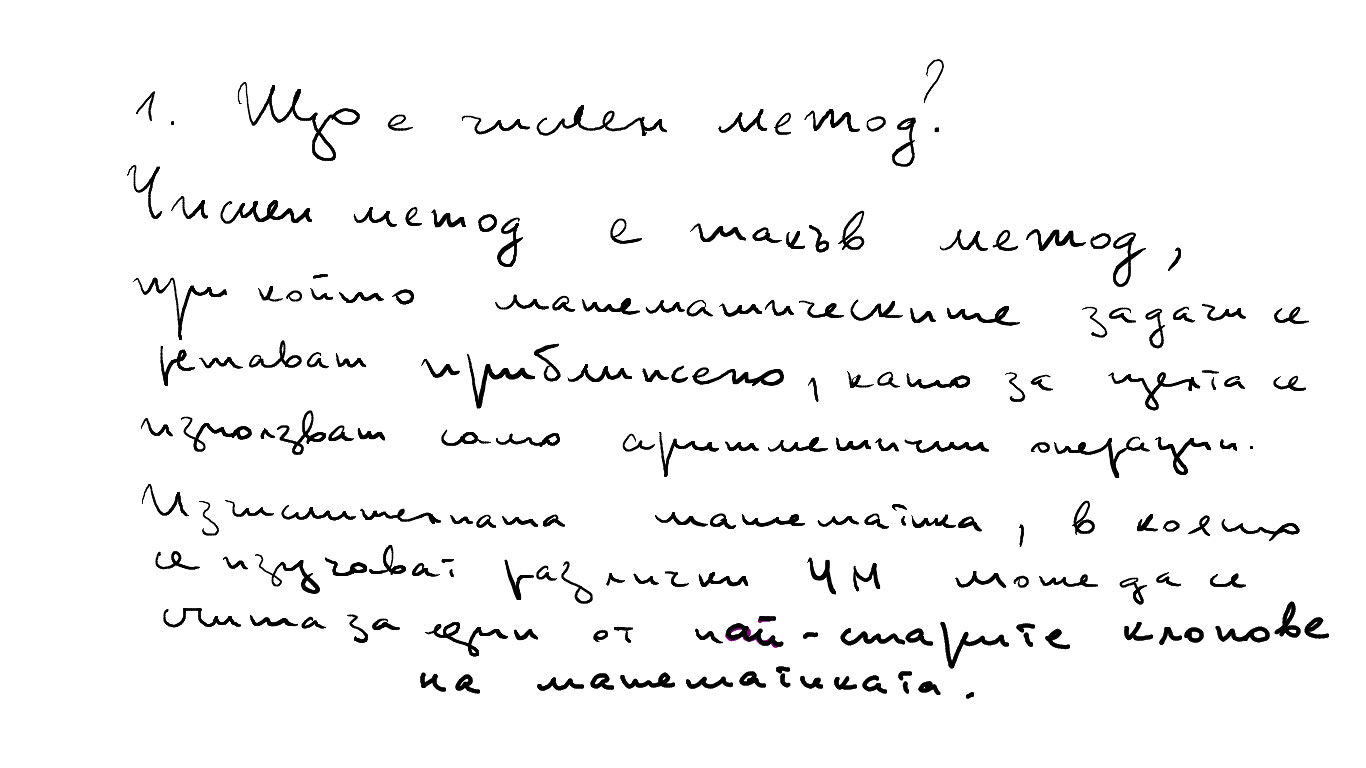 1. Що е числен метод?
Числен метод е такъв метод,
при който математическите задачи се
решават приближено, като за целта се
използват само аритметични операции.
Изчислителната математика, в която
се изучават различни ЧМ може да се
счита за един от най-старите клонове
на математиката.